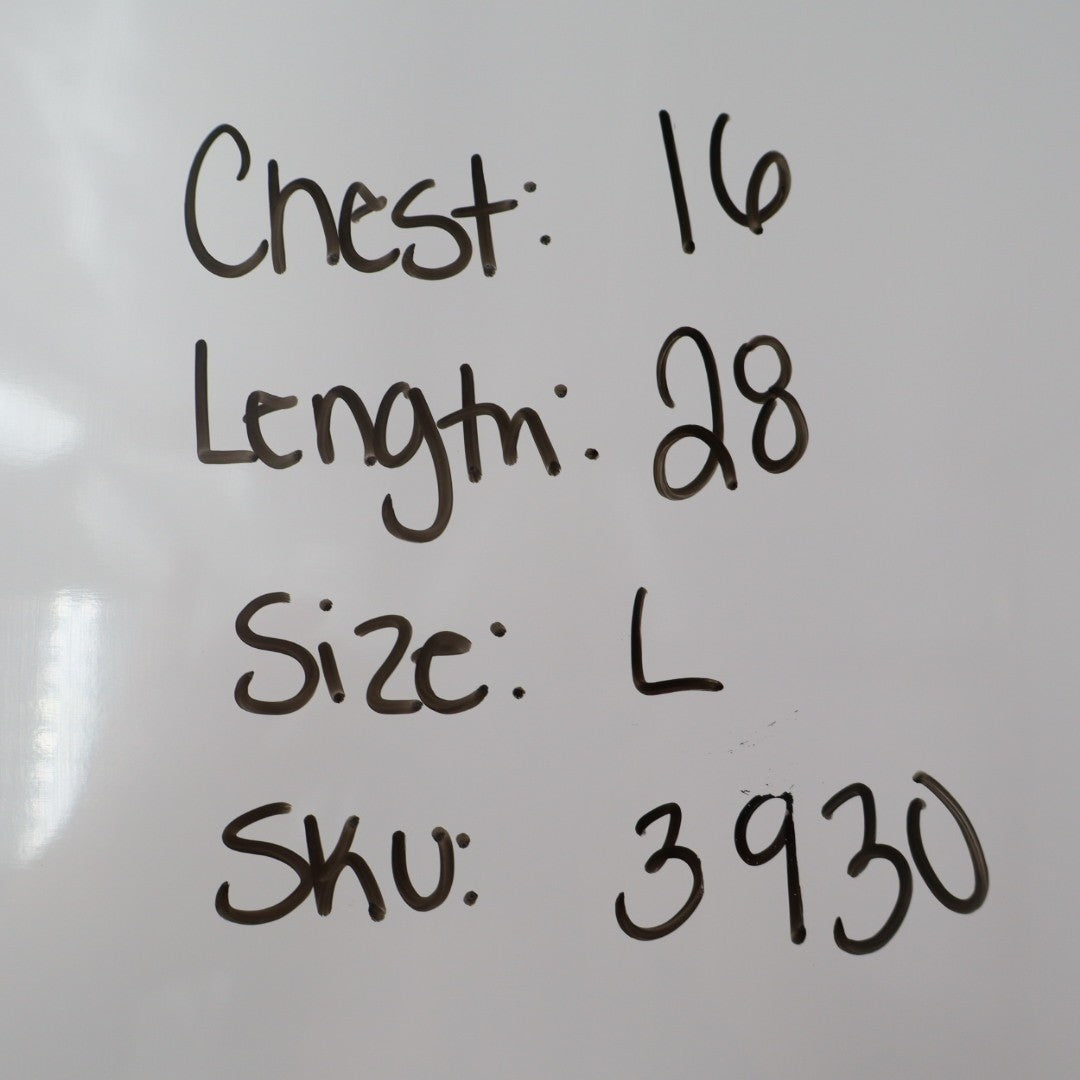 Chest: 16
Length: 28
Size: L
SKU: 3930